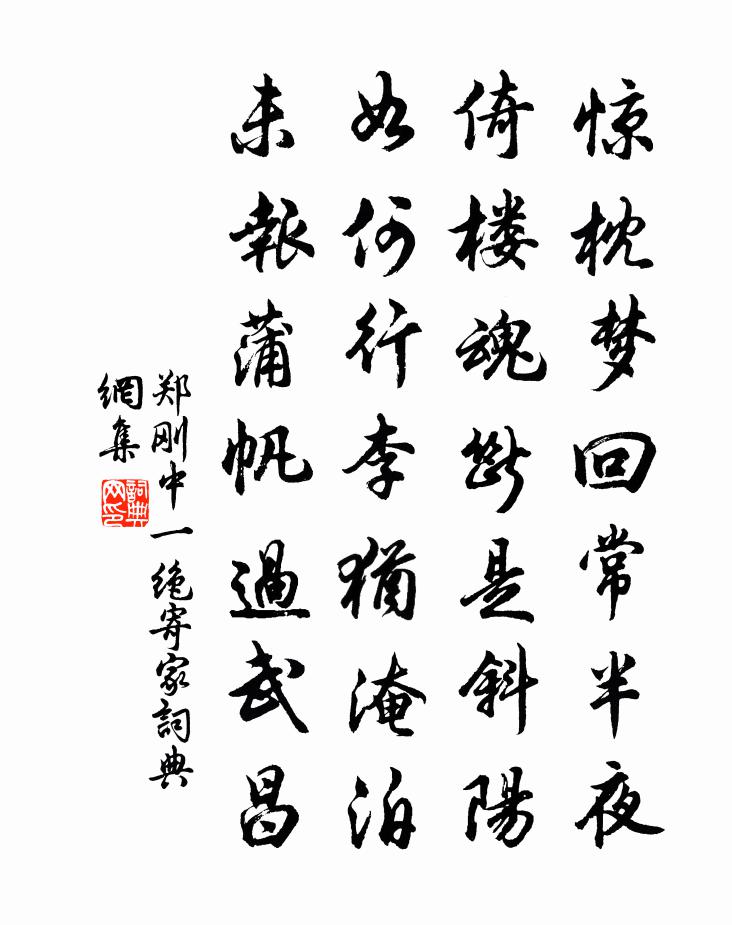 惊枕梦回常半夜
倚楼魂断是斜陽
如何行李猶淹泊
未報蒲帆過武昌
郑刚中一绝寄家詞典
網集
詞典
网印